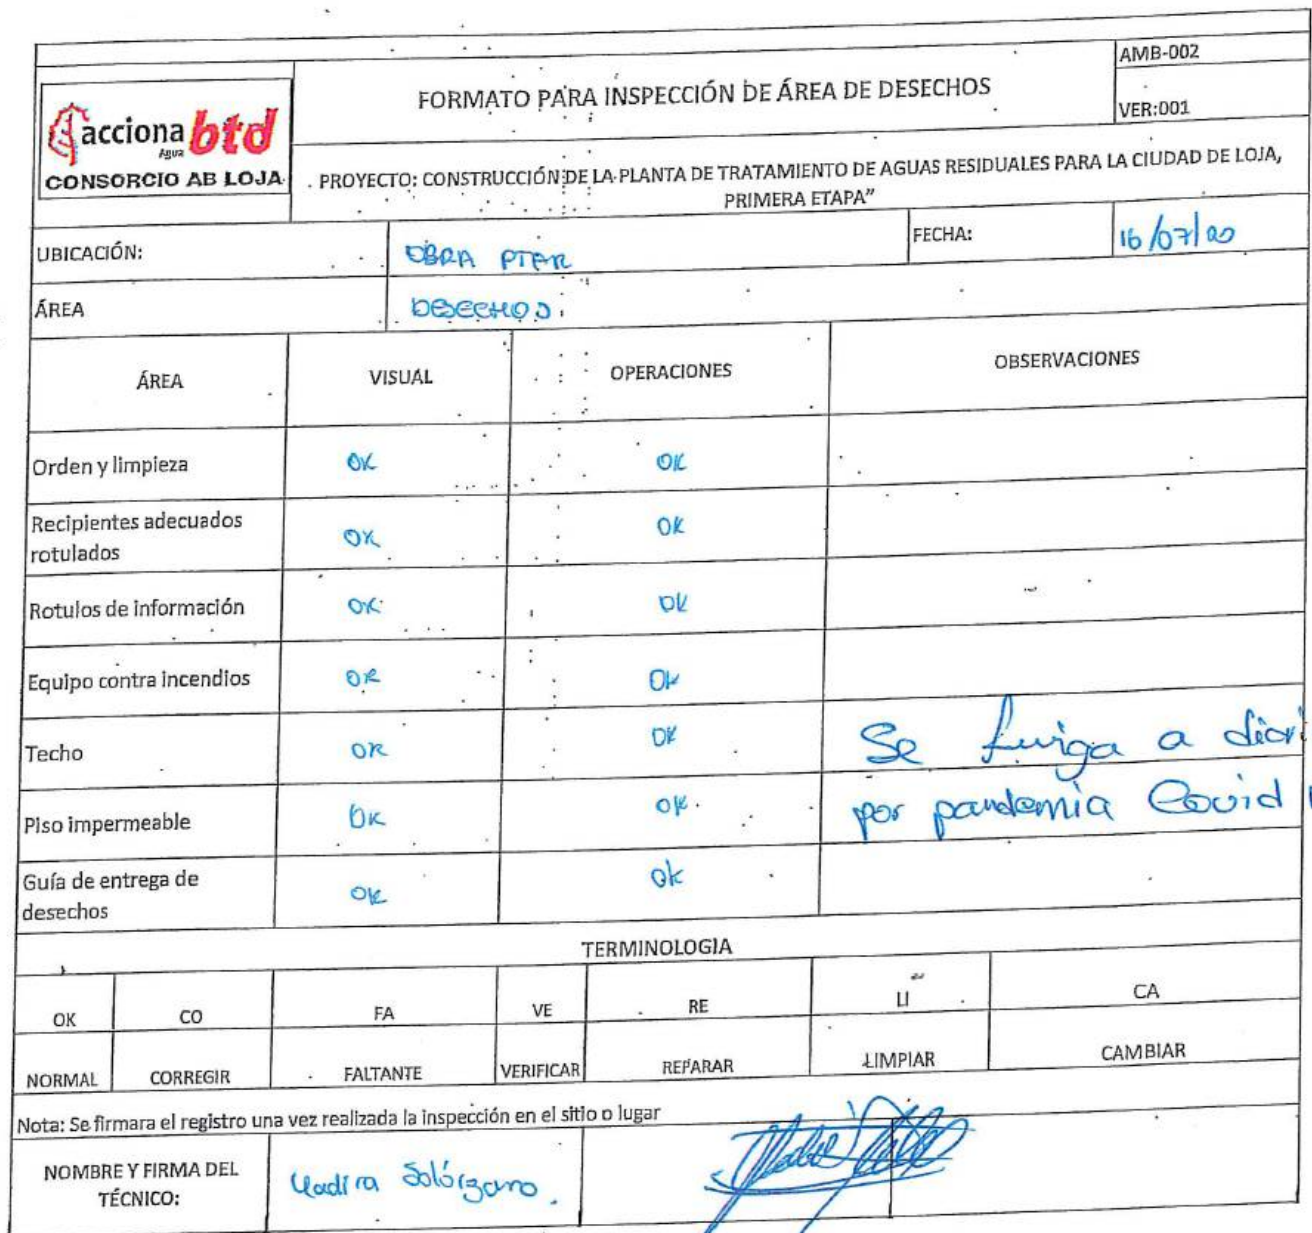 AMB-002
FORMATO PARA INSPECCIÓN DE ÁREA DE DESECHOS
VER:001
acciona btd
Agua
CONSORCIO AB LOJA
PROYECTO: CONSTRUCCIÓN DE LA PLANTA DE TRATAMIENTO DE AGUAS RESIDUALES PARA LA CIUDAD DE LOJA,
PRIMERA ETAPA"
UBICACIÓN: OBRA PTAR FECHA: 16/07/20
ÁREA DESECHOS
ÁREA VISUAL OPERACIONES OBSERVACIONES
Orden y limpieza OK OK
Recipientes adecuados
rotulados OK OK
Rotulos de información OK OK
Equipo contra incendios OK OK
Techo OK OK Se a diari
Piso impermeable OK OK por pandemia Covid
Guía de entrega de
desechos OK OK
TERMINOLOGIA
OK CO FA VE RE LI CA
NORMAL CORREGIR FALTANTE VERIFICAR REPARAR LIMPIAR CAMBIAR
Nota: Se firmara el registro una vez realizada la inspección en el sitio o lugar
NOMBRE Y FIRMA DEL
TÉCNICO: Solórzano.